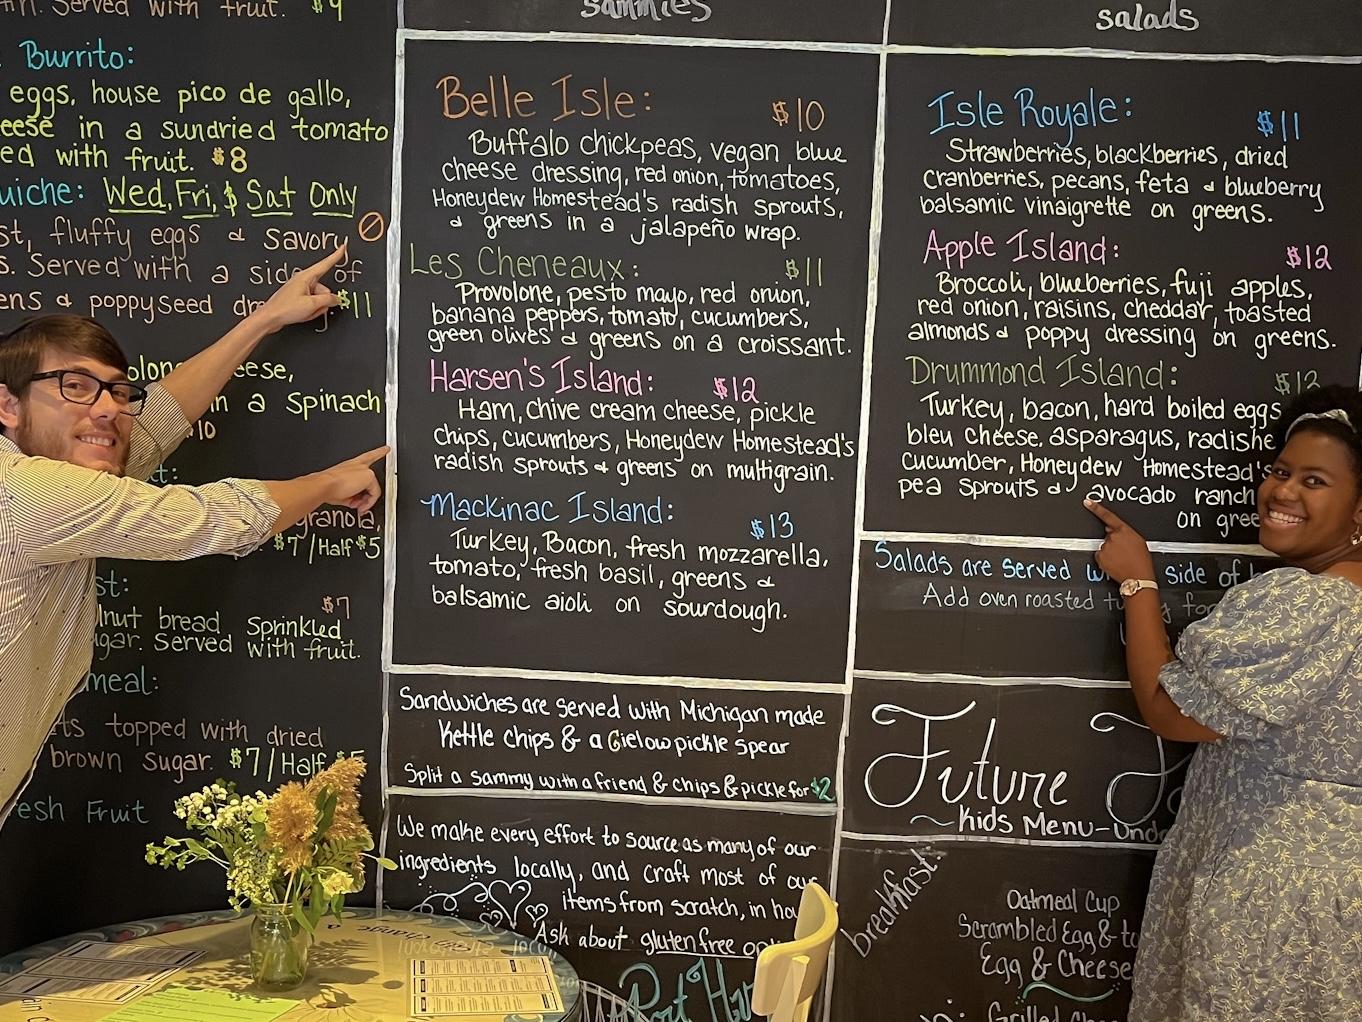 Served with fruit. $9
Burrito:
eggs, house pico de gallo,
in a sundried tomato
with fruit. $8
Wed, Fri, & Sat Only
fluffy eggs & savory
Served with a side of
& poppyseed
$11
in a Spinach
granola,
$7/Half $5
$7
bread Sprinkled
Served with fruit.
topped with dried
brown sugar. $7/Half $5
Fruit
sammies
Belle Isle: $10
Buffalo chickpeas, vegan blue
cheese dressing, red onion, tomatoes,
Honeydew Homestead's radish sprouts,
& greens in a jalapeño wrap.
Les Cheneaux: $11
Provolone, pesto mayo, red onion,
banana peppers, tomato, cucumbers,
green olives & greens on a croissant.
Harsen's Island: $12
Ham, chive cream cheese, pickle
chips, cucumbers, Honeydew Homestead's
radish sprouts & greens on multigrain.
Mackinac Island: $13
Turkey, Bacon, fresh mozzarella,
tomato, fresh basil, greens &
balsamic aioli on sourdough.
Sandwiches are served with Michigan made
Kettle chips & a Gielow pickle spear
Split a sammy with a friend & chips & pickle for $2
We make every effort to source as many of our
ingredients locally, and craft most of our
items from scratch, in
Ask about gluten free
Port
salads
Isle Royale: $11
Strawberries, blackberries, dried
cranberries, pecans, feta & blueberry
balsamic vinaigrette on greens.
Apple Island: $12
Broccoli, blueberries, fuji apples,
red onion, raisins, cheddar, toasted
almonds & poppy dressing on greens.
Drummond Island:
Turkey, bacon, hard boiled eggs
bleu cheese, asparagus,
cucumber, Honeydew Homestead's
pea sprouts & avocado ranch
on
Salads are served side of
Add oven roasted
Future
Kids Menu -
breakfast:
Oatmeal Cup
Scrambled Egg &
Egg & Cheese
Grilled